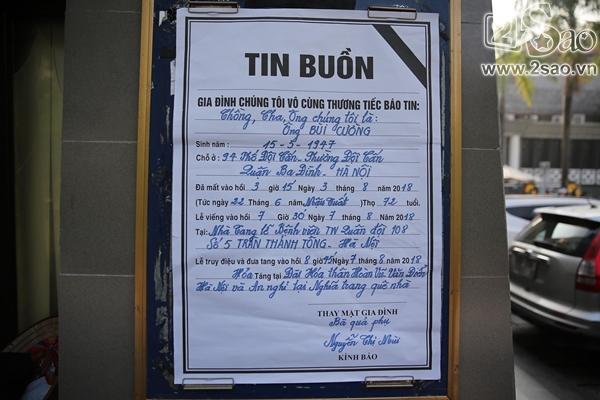 2Sao
www.2sao.vn
TIN BUỒN
GIA ĐÌNH CHÚNG TÔI VÔ CÙNG THƯƠNG TIẾC BÁO TIN:
Chồng, Cha, Ông chúng tôi là:
Ông BÙI CƯỜNG
Sinh năm: 15-5-1947
Chỗ ở: 94 Phố Đội Cấn- Phường Đội Cấn
Quận Ba Đình - HÀ NỘI
Đã mất vào hồi 3 giờ 15 Ngày 3 tháng 8 năm 2018
(Tức ngày 22 tháng 6 năm Mậu Tuất) Thọ 72 tuổi.
Lễ viếng vào hồi 7 giờ 30 Ngày 7 tháng 8 năm 2018
Tại: Nhà Tang lễ Bệnh viện TW Quân đội 108
Số 5 TRẦN THÁNH TÔNG - Hà Nội
Lễ truy điệu và đưa tang vào hồi 8 giờ 45 Ngày 7 tháng 8 năm 2018
Hỏa Táng tại Đài Hóa thân Hoàn Vũ Văn Điển
Hà Nội và An nghỉ tại Nghĩa trang quê nhà
THAY MẶT GIA ĐÌNH
Bà quả phụ
Nguyễn Thị Như
KÍNH BÁO